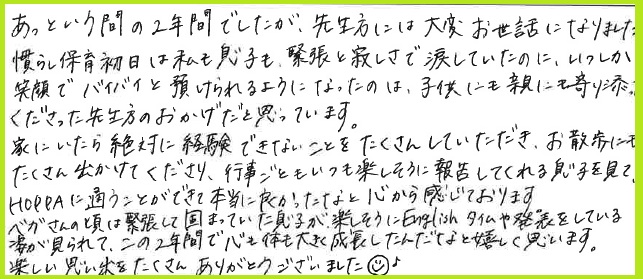 あっという間の2年間でしたが、先生方には大変お世話になりました
慣らし保育初日は私も息子も緊張と寂しさで涙していたのに、いつしか
笑顔でバイバイと預けられるようになったのは、子供にも親にも寄り添っ
てくださった先生方のおかげだと思っています。
家にいたら絶対に経験できないことをたくさんしていただき、お散歩にも
たくさん出かけてくださり、行事ごともいつも楽しそうに報告してくれる息子を見て、
HOPPAに通うことができて本当に良かったなと心から感じております
ベガさんの頃は緊張して固まっていた息子が、楽しそうにEnglishタイムや発表をしている
姿が見られて、この2年間で心も体も大きく成長したんだなと嬉しく思います。
楽しい思い出をたくさんありがとうございました☺♪